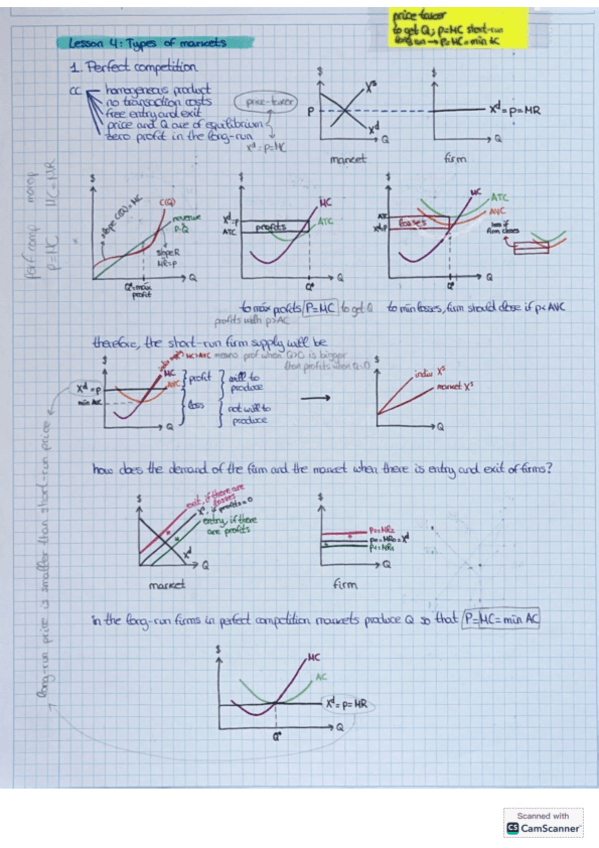 price taker
to get Q; p=MC short-run
long run → p=MC=min AC
Lesson 4: Types of markets
1. Perfect competition
CC
homogeneous product
no transaction costs
free entry and exit
price and Q are of equilibrium
zero profit in the long-run
price-taker
x^d=p=MC
$
P
X^s
X^d
Q
market
$
X^d=p=MR
Q
firm
perf comp
p=MC
monop
MC=MR
$
slope C(Q)=MC
C(Q)
revenue
P.Q
slope R
MR=P
Q
Q*=max
profit
$
X^d=P
ATC
profits
MC
ATC
Q*
Q
$
ATC
X^d=P
losses
MC
ATC
AVC
Q*
Q
loss if
firm closes
to máx profits P=MC to get Q
profits with p>AC
to min losses, firm should close if p<AVC
therefore, the short-run firm supply will be
$
X^d=P
min AVC
MC
AVC
Q
profit
loss
will to
produce
not will to
produce
means prof when Q>0 is bigger
than profits when Q=0
$
indiv X^s
market X^s
Q
how does the demand of the firm and the market when there is entry and exit of firms?
$
exit, if there are
losses
X^s, if profits=0
entry, if there
are profits
X^d
Q
market
$
P=MR2
P=MR0=X^d
P=MR1
Q
firm
in the long-run firms in perfect competition markets produce Q so that P=MC=min AC
$
MC
AC
X^d=p=MR
Q
Q*
long-run price is smaller than short-run price
Scanned with
CS CamScanner